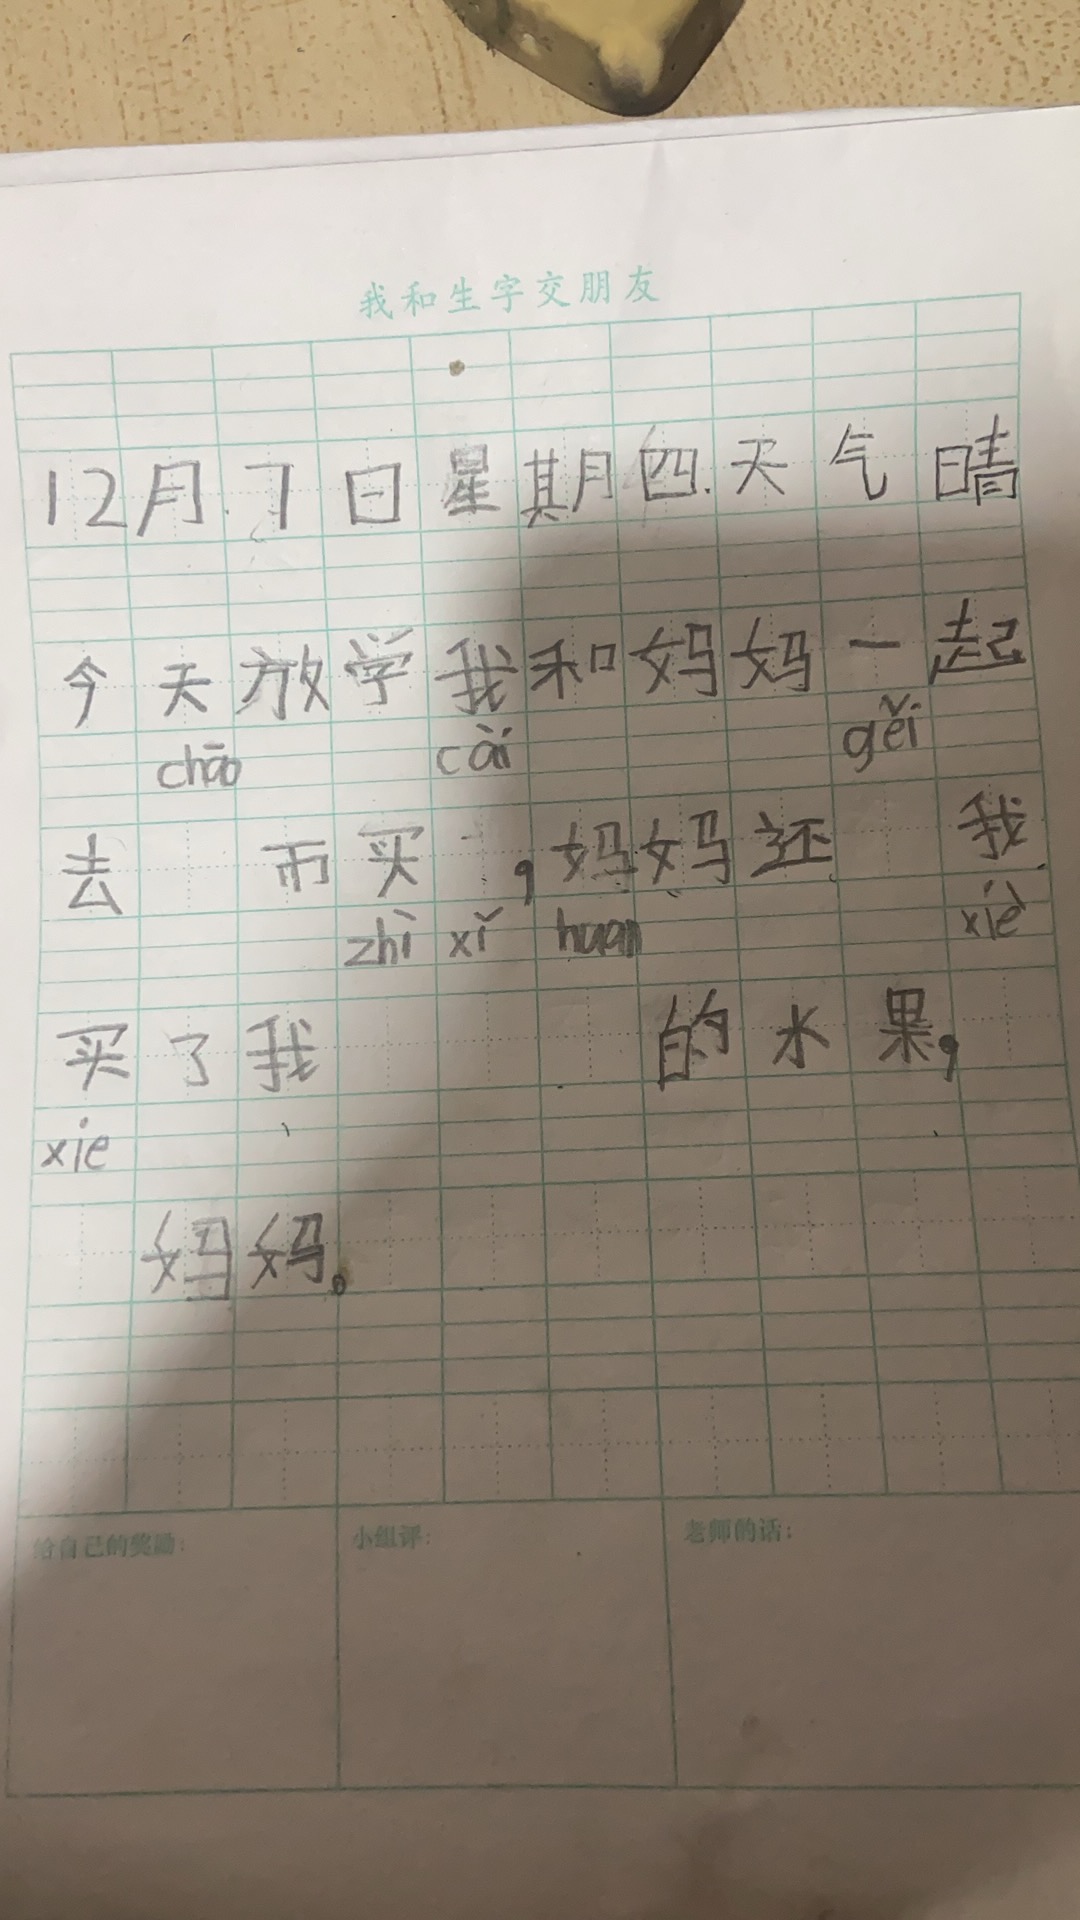 我和生字交朋友
12月7日星期四天气晴
今天放学我和妈妈一起
chāo cài gěi
去 而买 ,妈妈还 我
zhì xǐ huan xiè
买了我 的水果,
xie
妈妈。
给自己的奖励: 小组评: 老师的话: